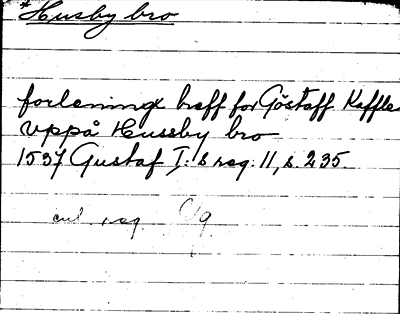 *Husby bro
forleningx breff for Göstaff Kaffle
vppå Hussby bro
1537 Gustaf I:s reg. 11, s. 235.
enl. reg.